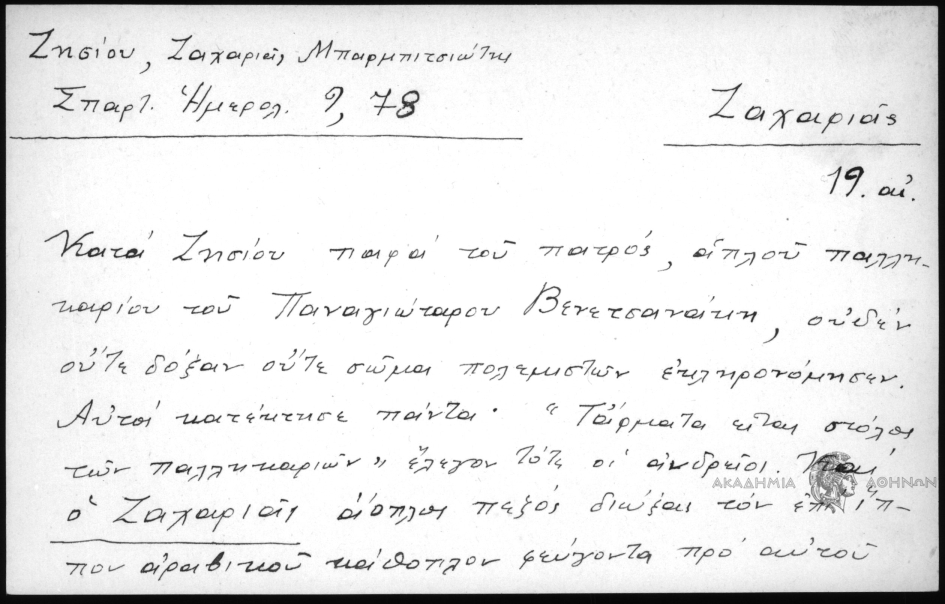 Ζησίου, Ζαχαριᾶς Μπαρμπιτσιώτης
Σπαρτ. Ἡμερολ. 9, 78
Ζαχαριᾶς
19. αἰ.
Κατά Ζησίου παρά τοῦ πατρός, ἁπλοῦ παλλη-
καρίου τοῦ Παναγιώταρου Βενετσανάκη, οὐδέν
οὔτε δόξαν οὔτε σῶμα πολεμιστῶν ἐκληρονόμησεν.
Αὐτός κατέκτησε πάντα· "Τἄρματα εἶται στόλοι
τῶν παλληκαριῶν" ἔλεγον τότε οἱ ἀνδρεῖοι. Καί
ΑΚΑΔΗΜΙΑ ΑΘΗΝΩΝ
ὁ Ζαχαριᾶς ἄοπλος πεζός διώξας τόν ἐπί ἵπ-
που ἀραβικοῦ κάθοπλον φεύγοντα πρό αὐτοῦ